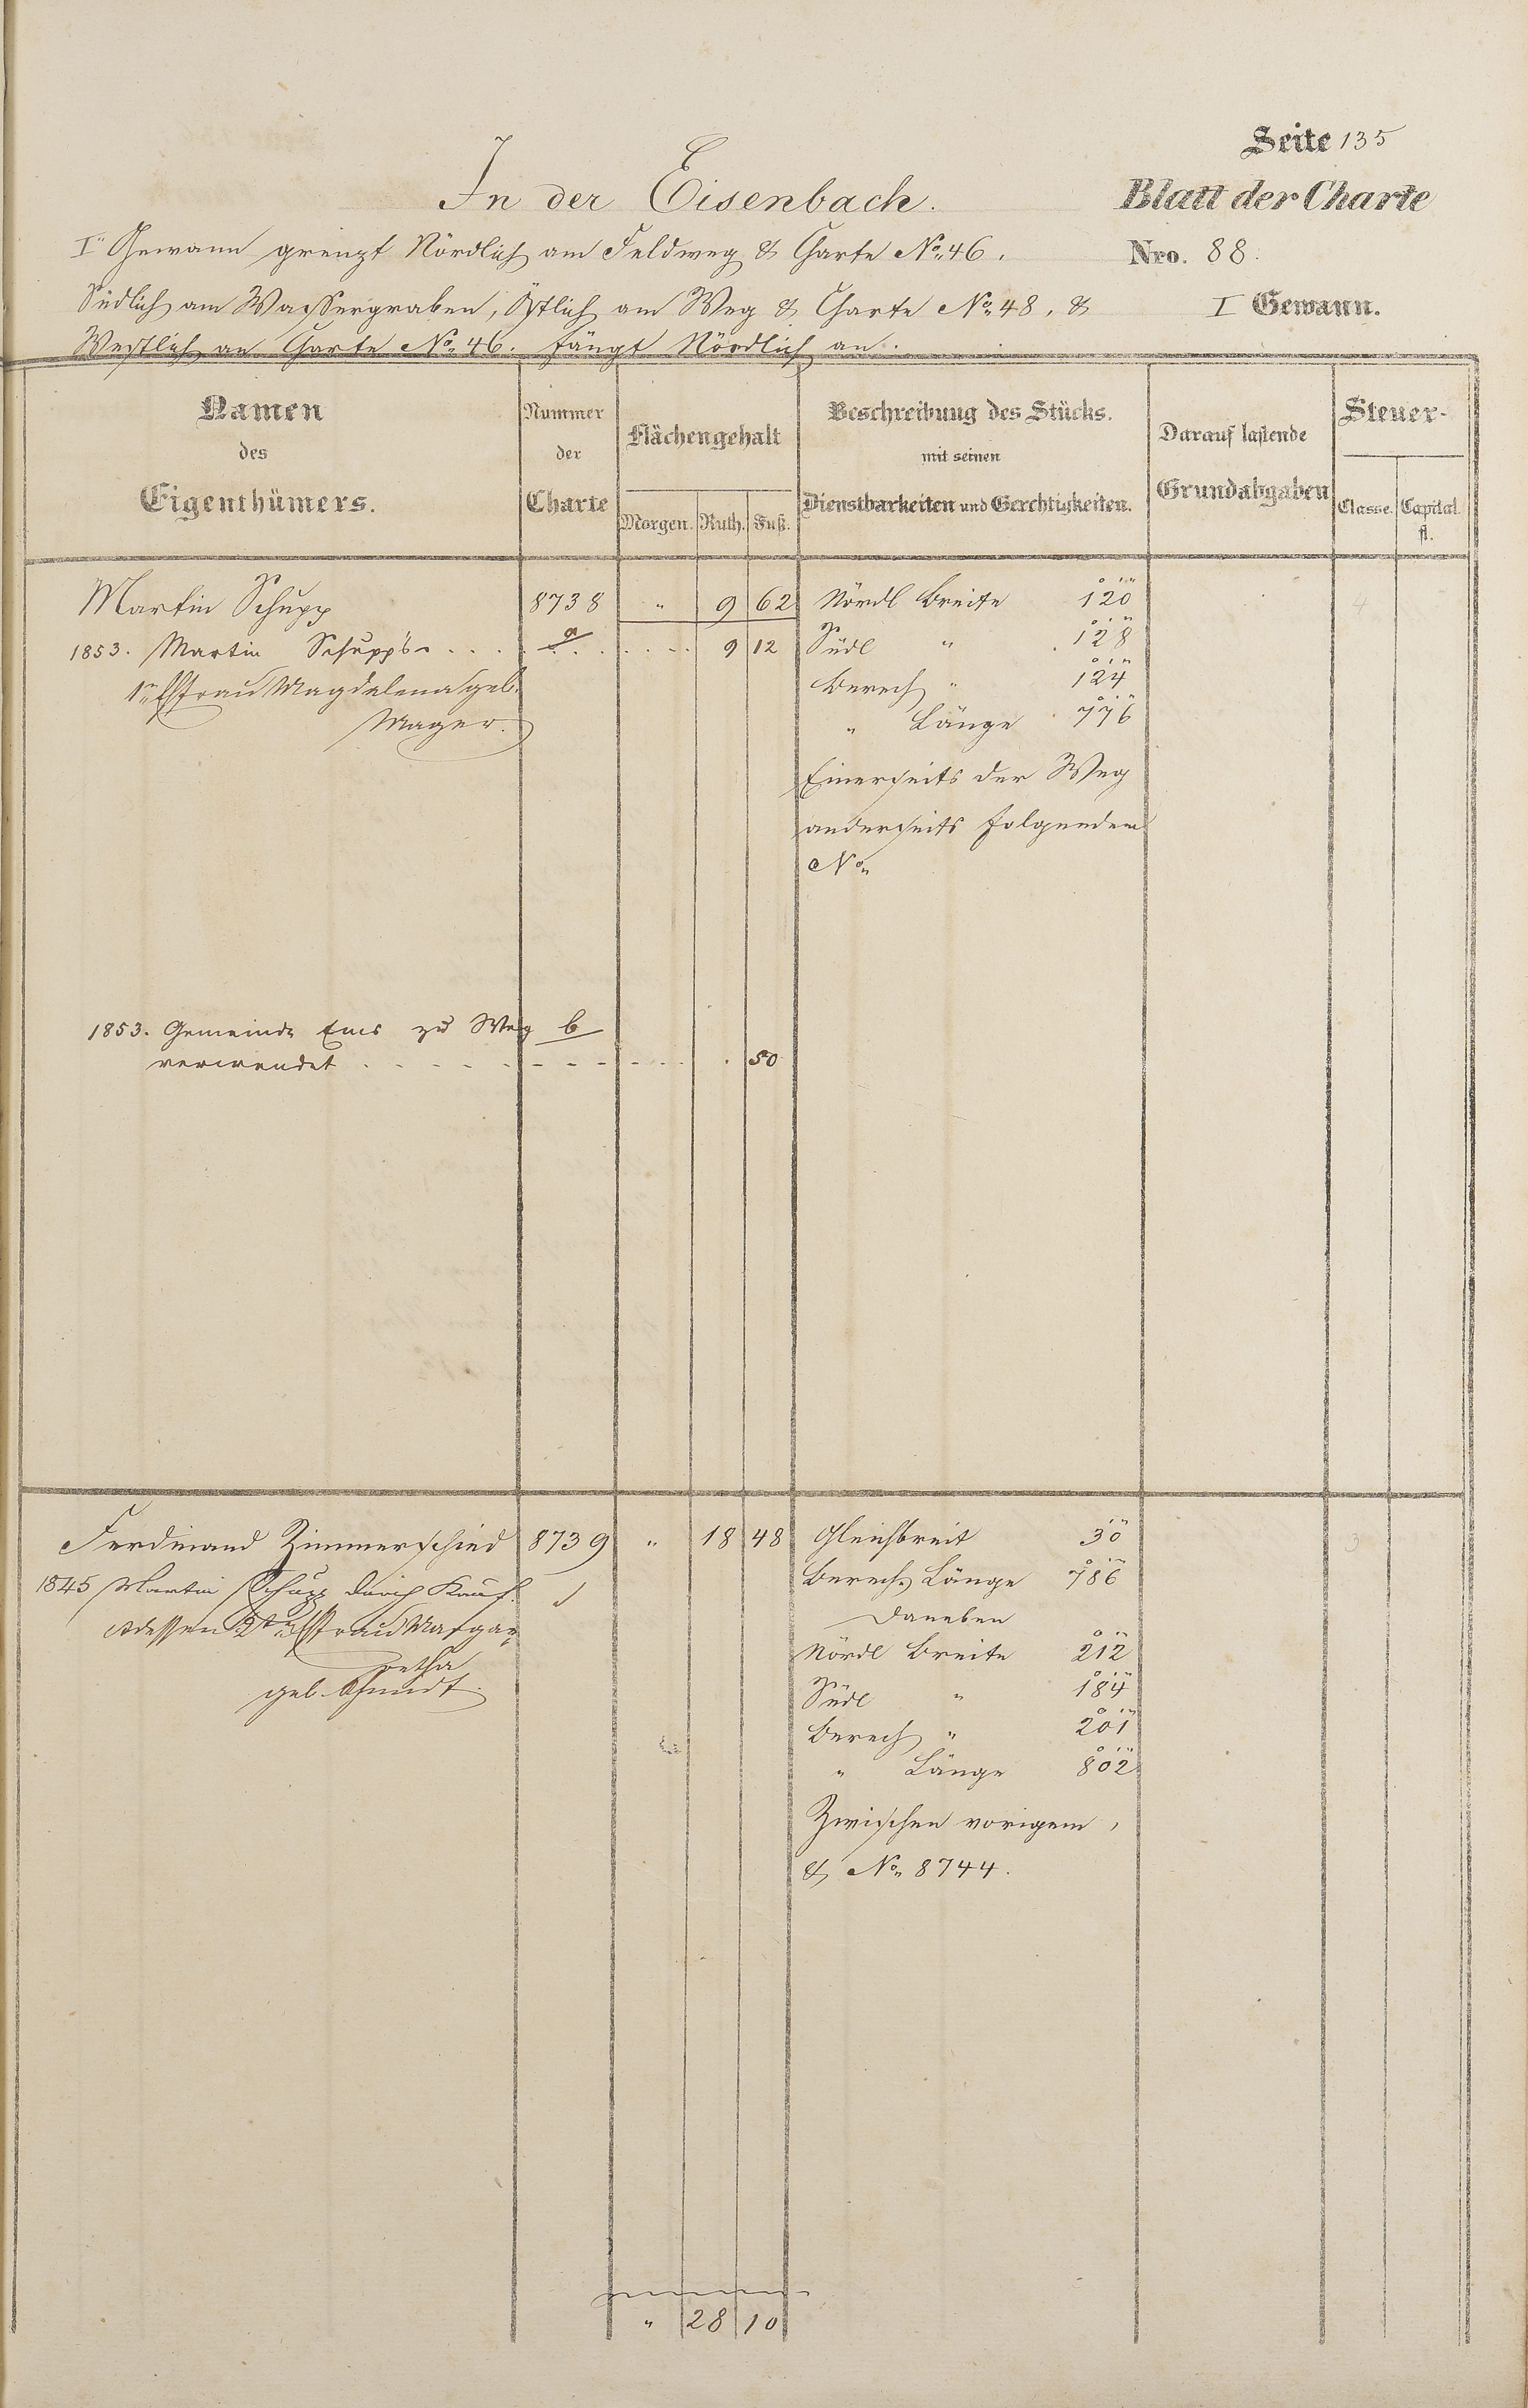 Seite 135
In der Eisenbach.
Blatt der Charte
Ite Gewann grenzt Nördlich am Feldweg & Charte No. 46.
Nro. 88.
Südlich am Wassergraben, Östlich am Weg & Charte No. 48, &
I Gewann.
Westlich an Charte No. 46. fängt Nördlich an.
Namen des Eigenthümers.
Nummer der Charte
Flächengehalt
Morgen. Ruth. Fuß.
Beschreibung des Stücks.
mit seinen
Dienstbarkeiten und Gerechtigkeiten.
Darauf lastende
Grundabgaben
Steuer-
Classe. Capital
fl.
Martin Schupp 8738 " 9 62 Nördl Breite 120
4
1853. Martin Schupp's . . . a . . . . 9 12 Südl " 128
1r Ehfrau Magdalena geb. Berech " 124
Mager. " Länge 776
Einerseits der Weg
anderseits folgendem
No.
1853. Gemeinde Ems zu Weg b
verwendet . . . . . . . . 50
Ferdinand Zimmerschied 8739 " 18 48 Gleichbreit 30
3
1845 Martin Schupp durch Kauf. Berech. Länge 786
dessen 2t Ehfrau Margar= Daneben
retha Nördl Breite 212
geb. Südl " 184
Berech " 201
" Länge 802
Zwischen vorigem,
& No. 8744.
" 28 10